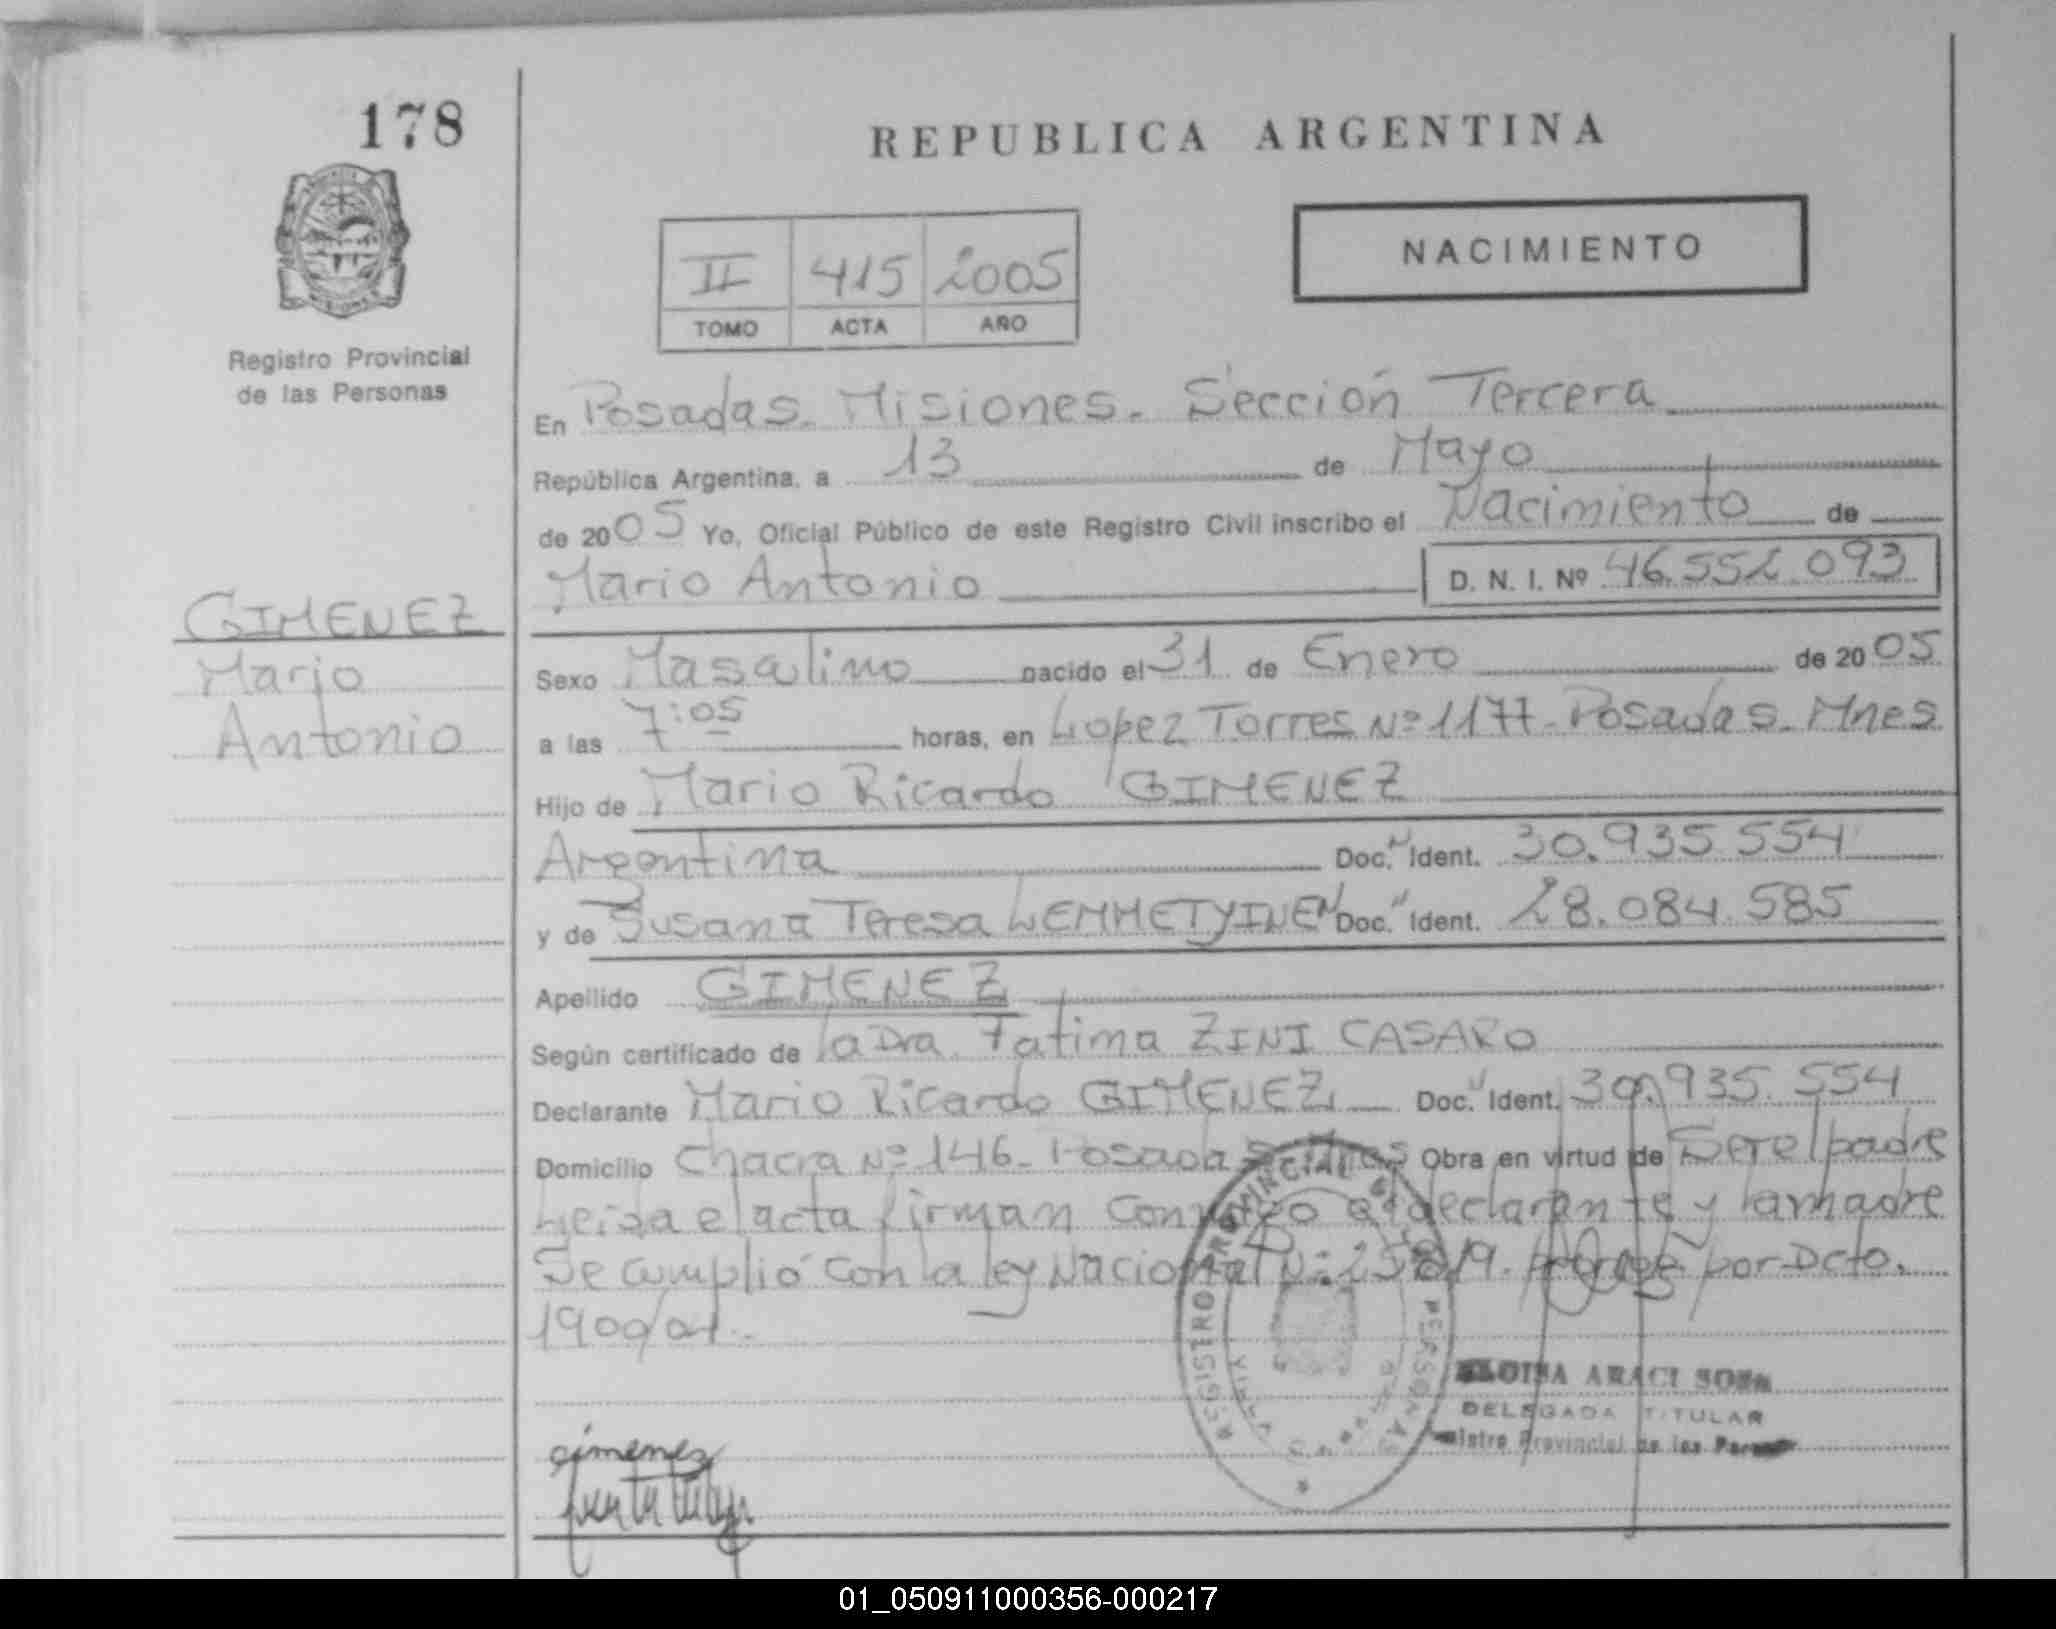 178
REPUBLICA ARGENTINA
NACIMIENTO
II 415 2005
TOMO ACTA AÑO
Registro Provincial
de las Personas
En Posadas. Misiones. Sección Tercera
República Argentina, a 13 de Mayo
de 2005 Yo, Oficial Público de este Registro Civil inscribo el Nacimiento de
Mario Antonio D. N. I. Nº 46.552.093
GIMENEZ
Mario
Antonio
Sexo Masculino nacido el 31 de Enero de 2005
a las 7:05 horas, en Lopez Torres Nº 1177. Posadas. Mnes
Hijo de Mario Ricardo GIMENEZ
Argentina Doc. Ident. 30.935.554
y de Susana Teresa LEMMETYINEN Doc. Ident. 28.084.585
Apellido GIMENEZ
Según certificado de la Dra. Fatima ZINI CASARO
Declarante Mario Ricardo GIMENEZ Doc. Ident. 30.935.554
Domicilio Chacra Nº 146. Posadas Mnes Obra en virtud de Ser el padre
Leida el acta firman conmigo el declarante y la madre
Se cumplió con la ley Nacional Nº 25819. por Dcto.
1909/01.
REGISTRO PROVINCIAL DE LAS PERSONAS
ELOISA ARACI SOSA
DELEGADA TITULAR
Registro Provincial de las Personas
gimenez
01_050911000356-000217